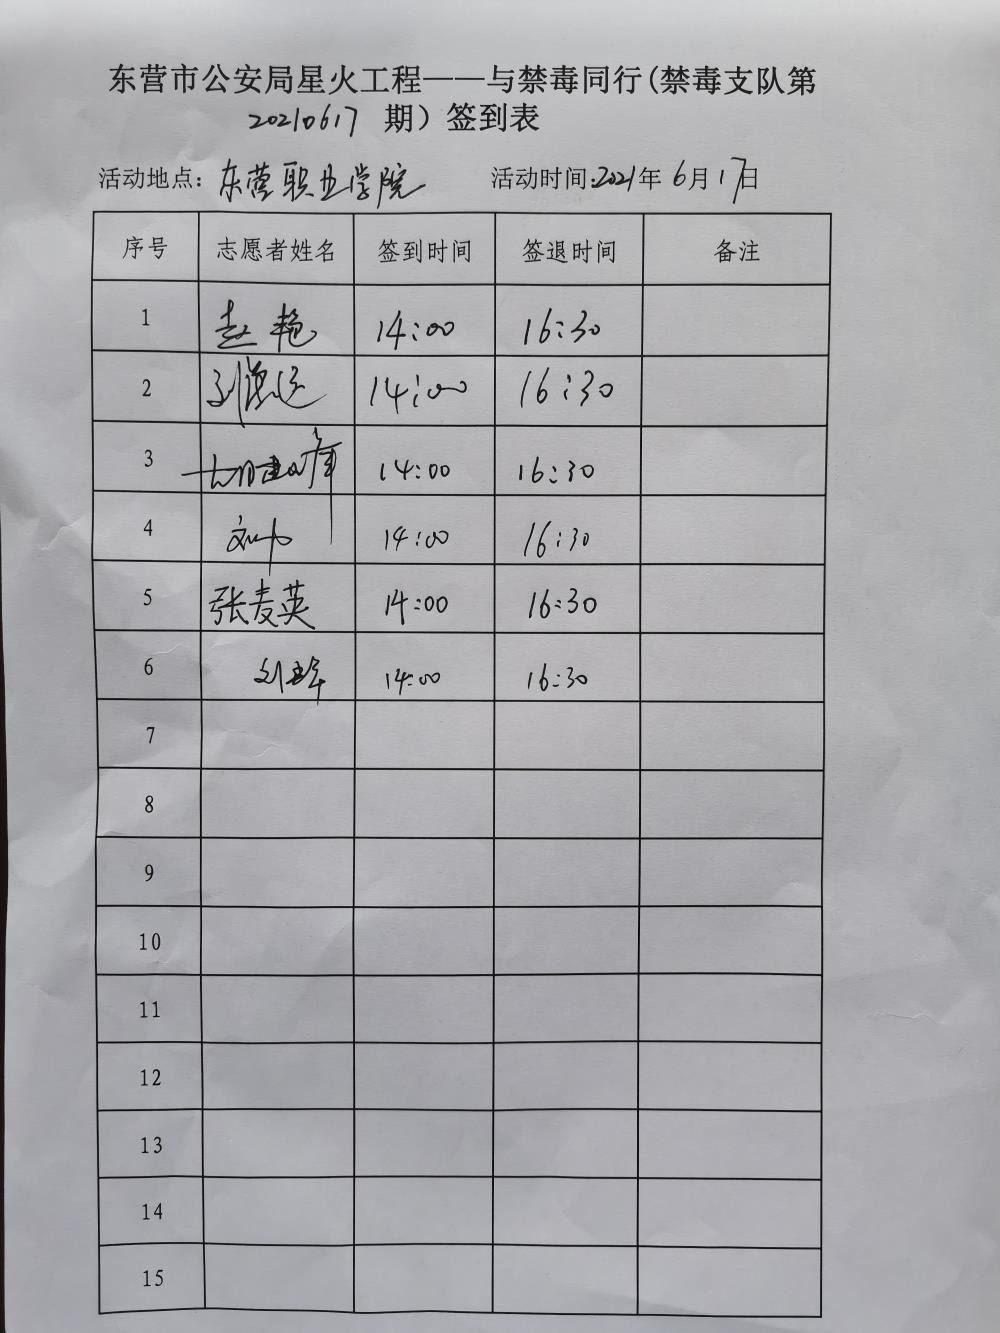 东营市公安局星火工程——与禁毒同行(禁毒支队第
20210617 期）签到表
活动地点：东营职业学院 活动时间：2021年6月17日
序号 志愿者姓名 签到时间 签退时间 备注
1 赵艳 14:00 16:30
2 刘 14:00 16:30
3 14:00 16:30
4 14:00 16:30
5 张麦英 14:00 16:30
6 刘 14:00 16:30
7
8
9
10
11
12
13
14
15